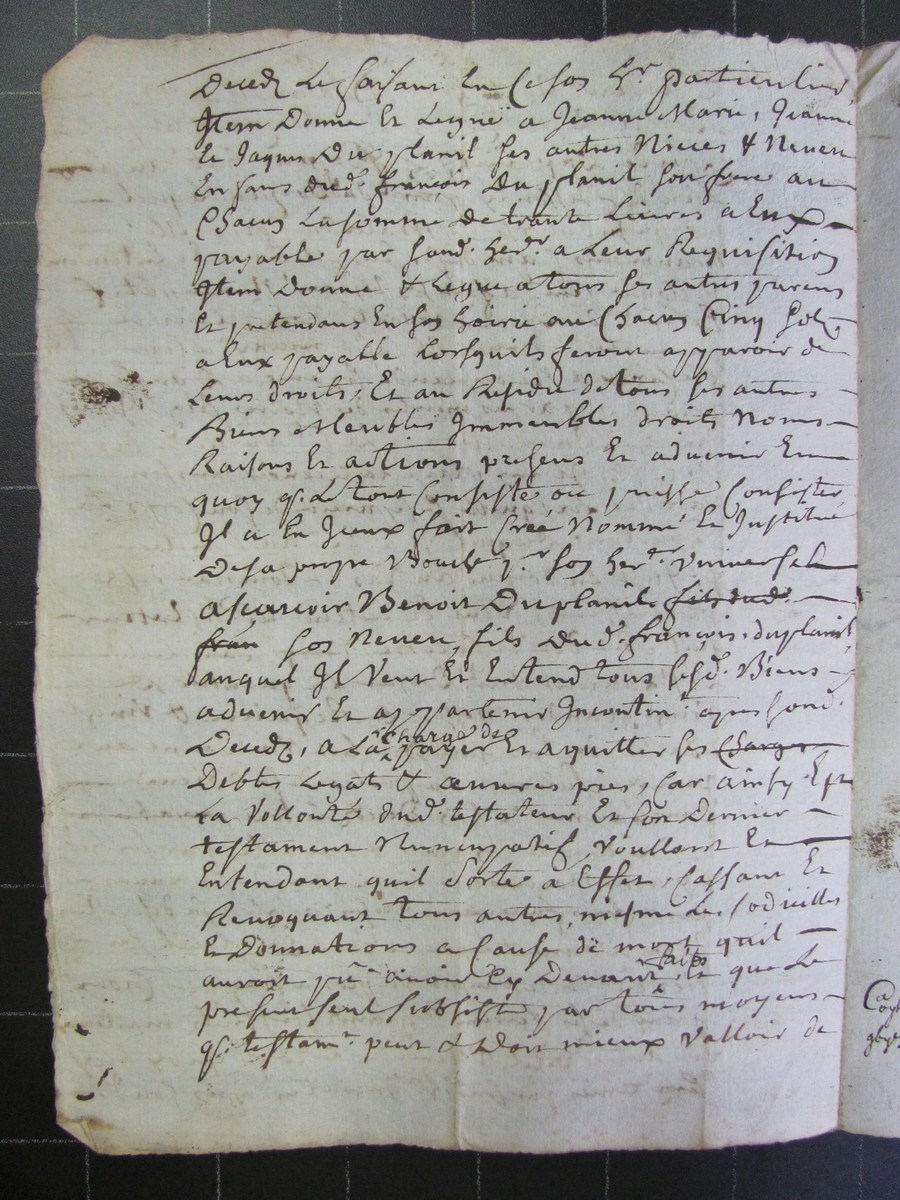 Deced. Le faisant En Ce son hr. particulier
Item Donne Et Legue a Jeanne Marie, Jeanne
Et Jaques Du planil ses autres Nieces & Neveu
Enfans dud. françois Du planil son frere au
Chacun La somme de trante Livres a Eux
payable par sond. her. a Leur Requisition
Item Donne & Legue a tous ses autres parens
Et pretendans En son hoirie a Chacun Cinq sols
a Eux payable Lorsquils feront apparoir de
Leurs droits, Et au Residu de tous ses autres
Biens Meubles Immeubles droits Noms
Raisons Et actions presens Et advenir En
quoy q. Le tout Consiste ou puisse Consister
Il a En Iceux fait Créé Nommé Et Institué
De sa propre Bouche p.r son her. Universel
a scavoir Benoit Duplanil fils dud.
fran son Neveu, fils Dud. françois duplanil
auquel Il Veut Et Entend tous sesd. Biens
advenir Et appartenir Incontin. apres sond.
Deced, a La Charge de payer Et aquitter ses Charges
Debtes Legats & œuvres pies, Car ainsy Est
La Vollonté dud. testateur Et son Dernier
testament Nuncupatif, Voullant Et
Entendant quil Sorte a Effet, Cassant Et
Revoquant tous autres, mesme Les Codicilles
Et Donnations a Cause de mort quil
auroit pû avoir Cy Devant faits Et que Le
present seul subsiste par tous moyens
q. testam. peut & Doit mieux Valloir de